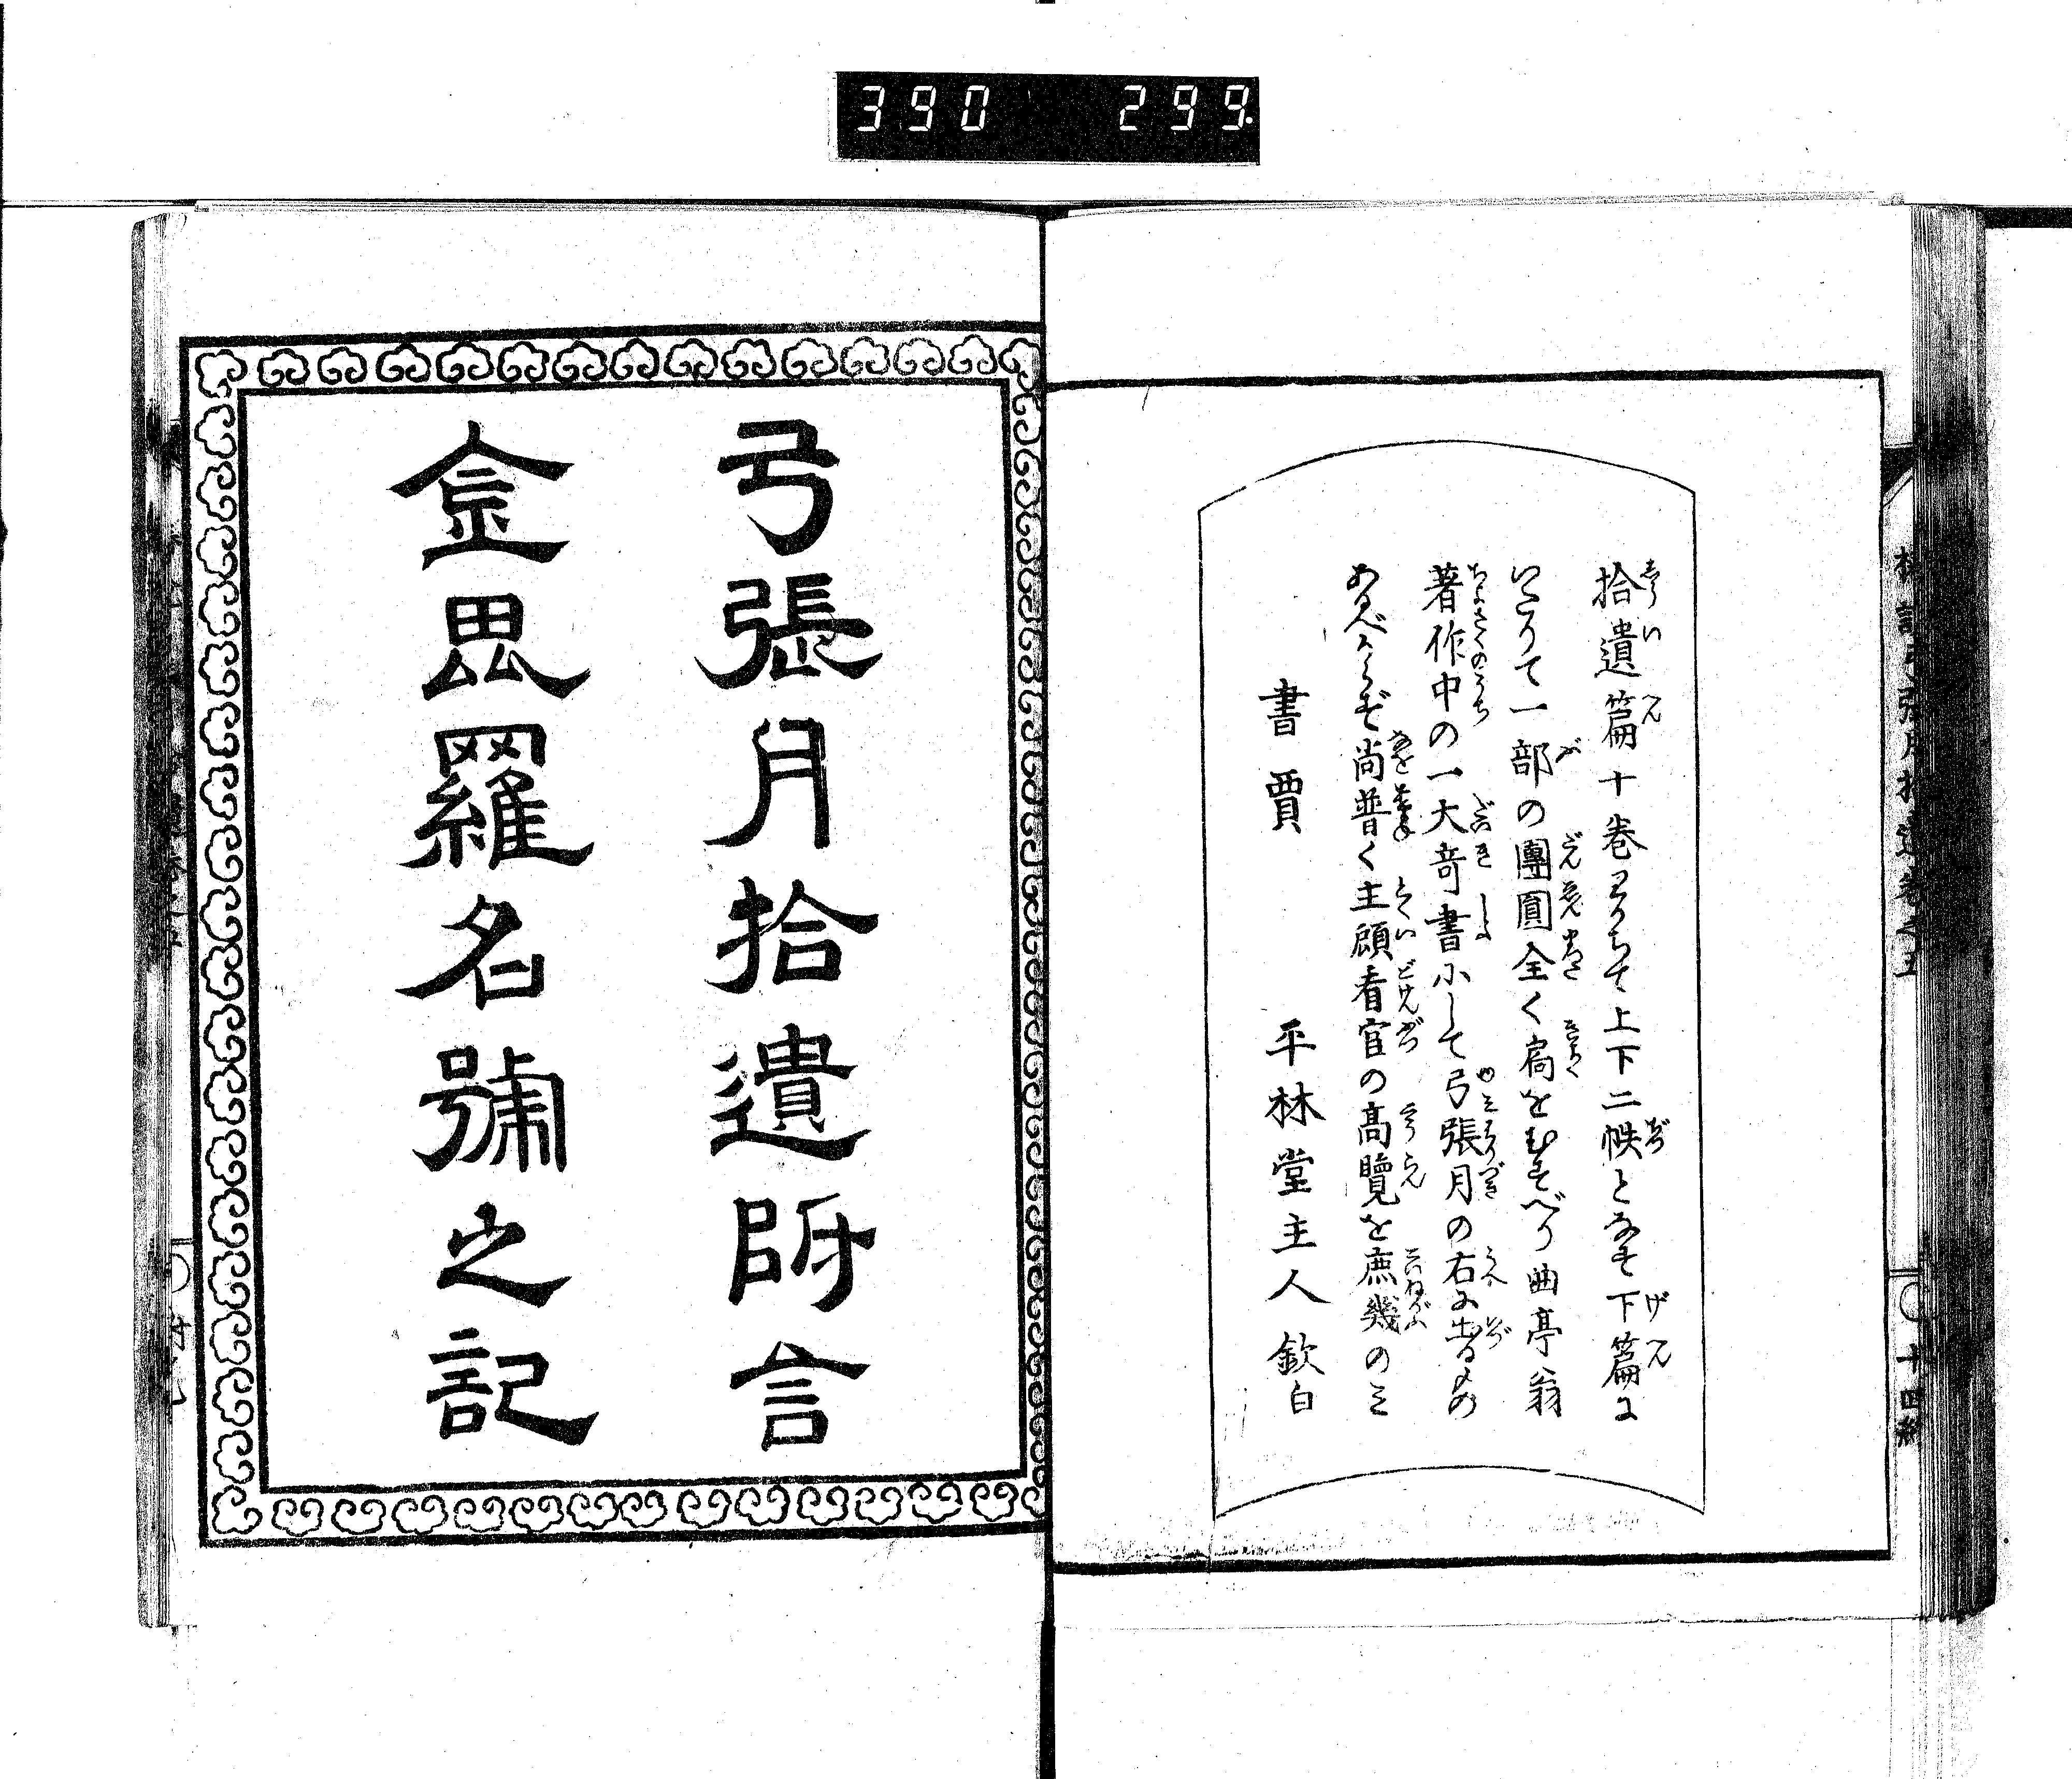 390 299
拾遺篇十巻わかちて上下二帙となす下篇に
いたりて一部の團圓全く局をむすべり曲亭翁
著作中の一大竒書にして弓張月の右に出るもの
あるべからず尚普く主顧看官の髙覽を庶幾のミ
書賈 平林堂主人欽白
弓張月拾遺附言
金毘羅名號之記